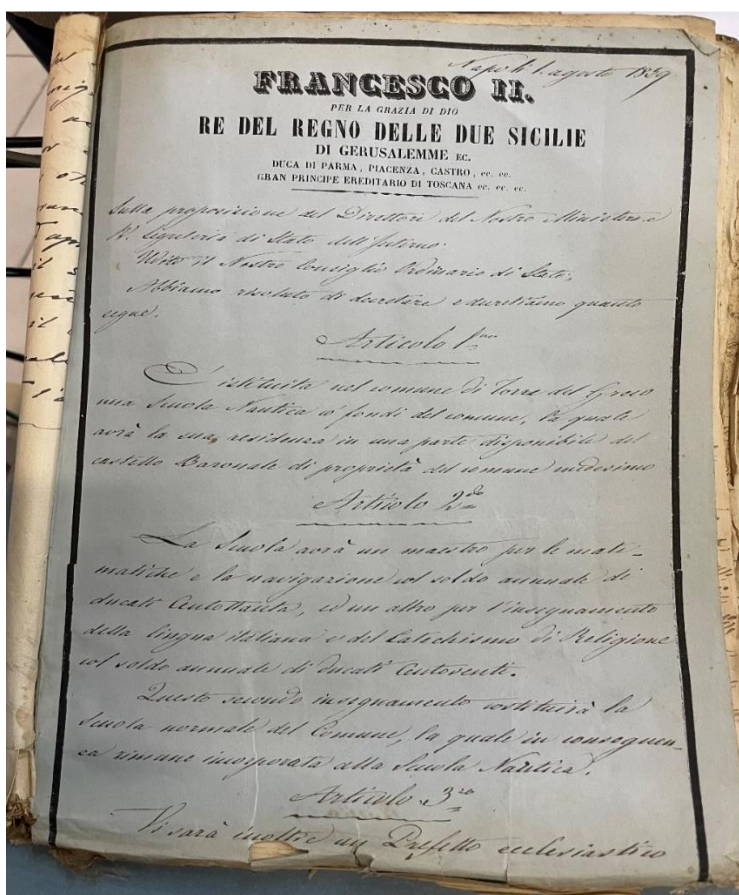 Napoli 1. agosto 1859
FRANCESCO II.
PER LA GRAZIA DI DIO
RE DEL REGNO DELLE DUE SICILIE
DI GERUSALEMME EC.
DUCA DI PARMA, PIACENZA, CASTRO, ec. ec.
GRAN PRINCIPE EREDITARIO DI TOSCANA ec. ec. ec.
Sulla proposizione del Direttore del Nostro Ministero e
R.l Segreteria di Stato dell'Interno.
Udito il Nostro Consiglio Ordinario di Stato;
Abbiamo risoluto di decretare e decretiamo quanto
segue.
Articolo 1.mo
È istituita nel comune di Torre del Greco
una Scuola Nautica a' fondi del comune, la quale
avrà la sua residenza in una parte disponibile del
castello Baronale di proprietà del comune medesimo
Articolo 2.do
La Scuola avrà un maestro per le mate-
matiche e la navigazione col soldo annuale di
ducati Centottanta, ed un altro per l'insegnamento
della lingua italiana e del Catechismo di Religione
col soldo annuale di ducati Centoventi.
Questo secondo insegnamento costituirà la
Scuola normale del Comune, la quale in conseguen-
za rimane incorporata alla Scuola Nautica.
Articolo 3.zo
Vi sarà inoltre un Prefetto ecclesiastico